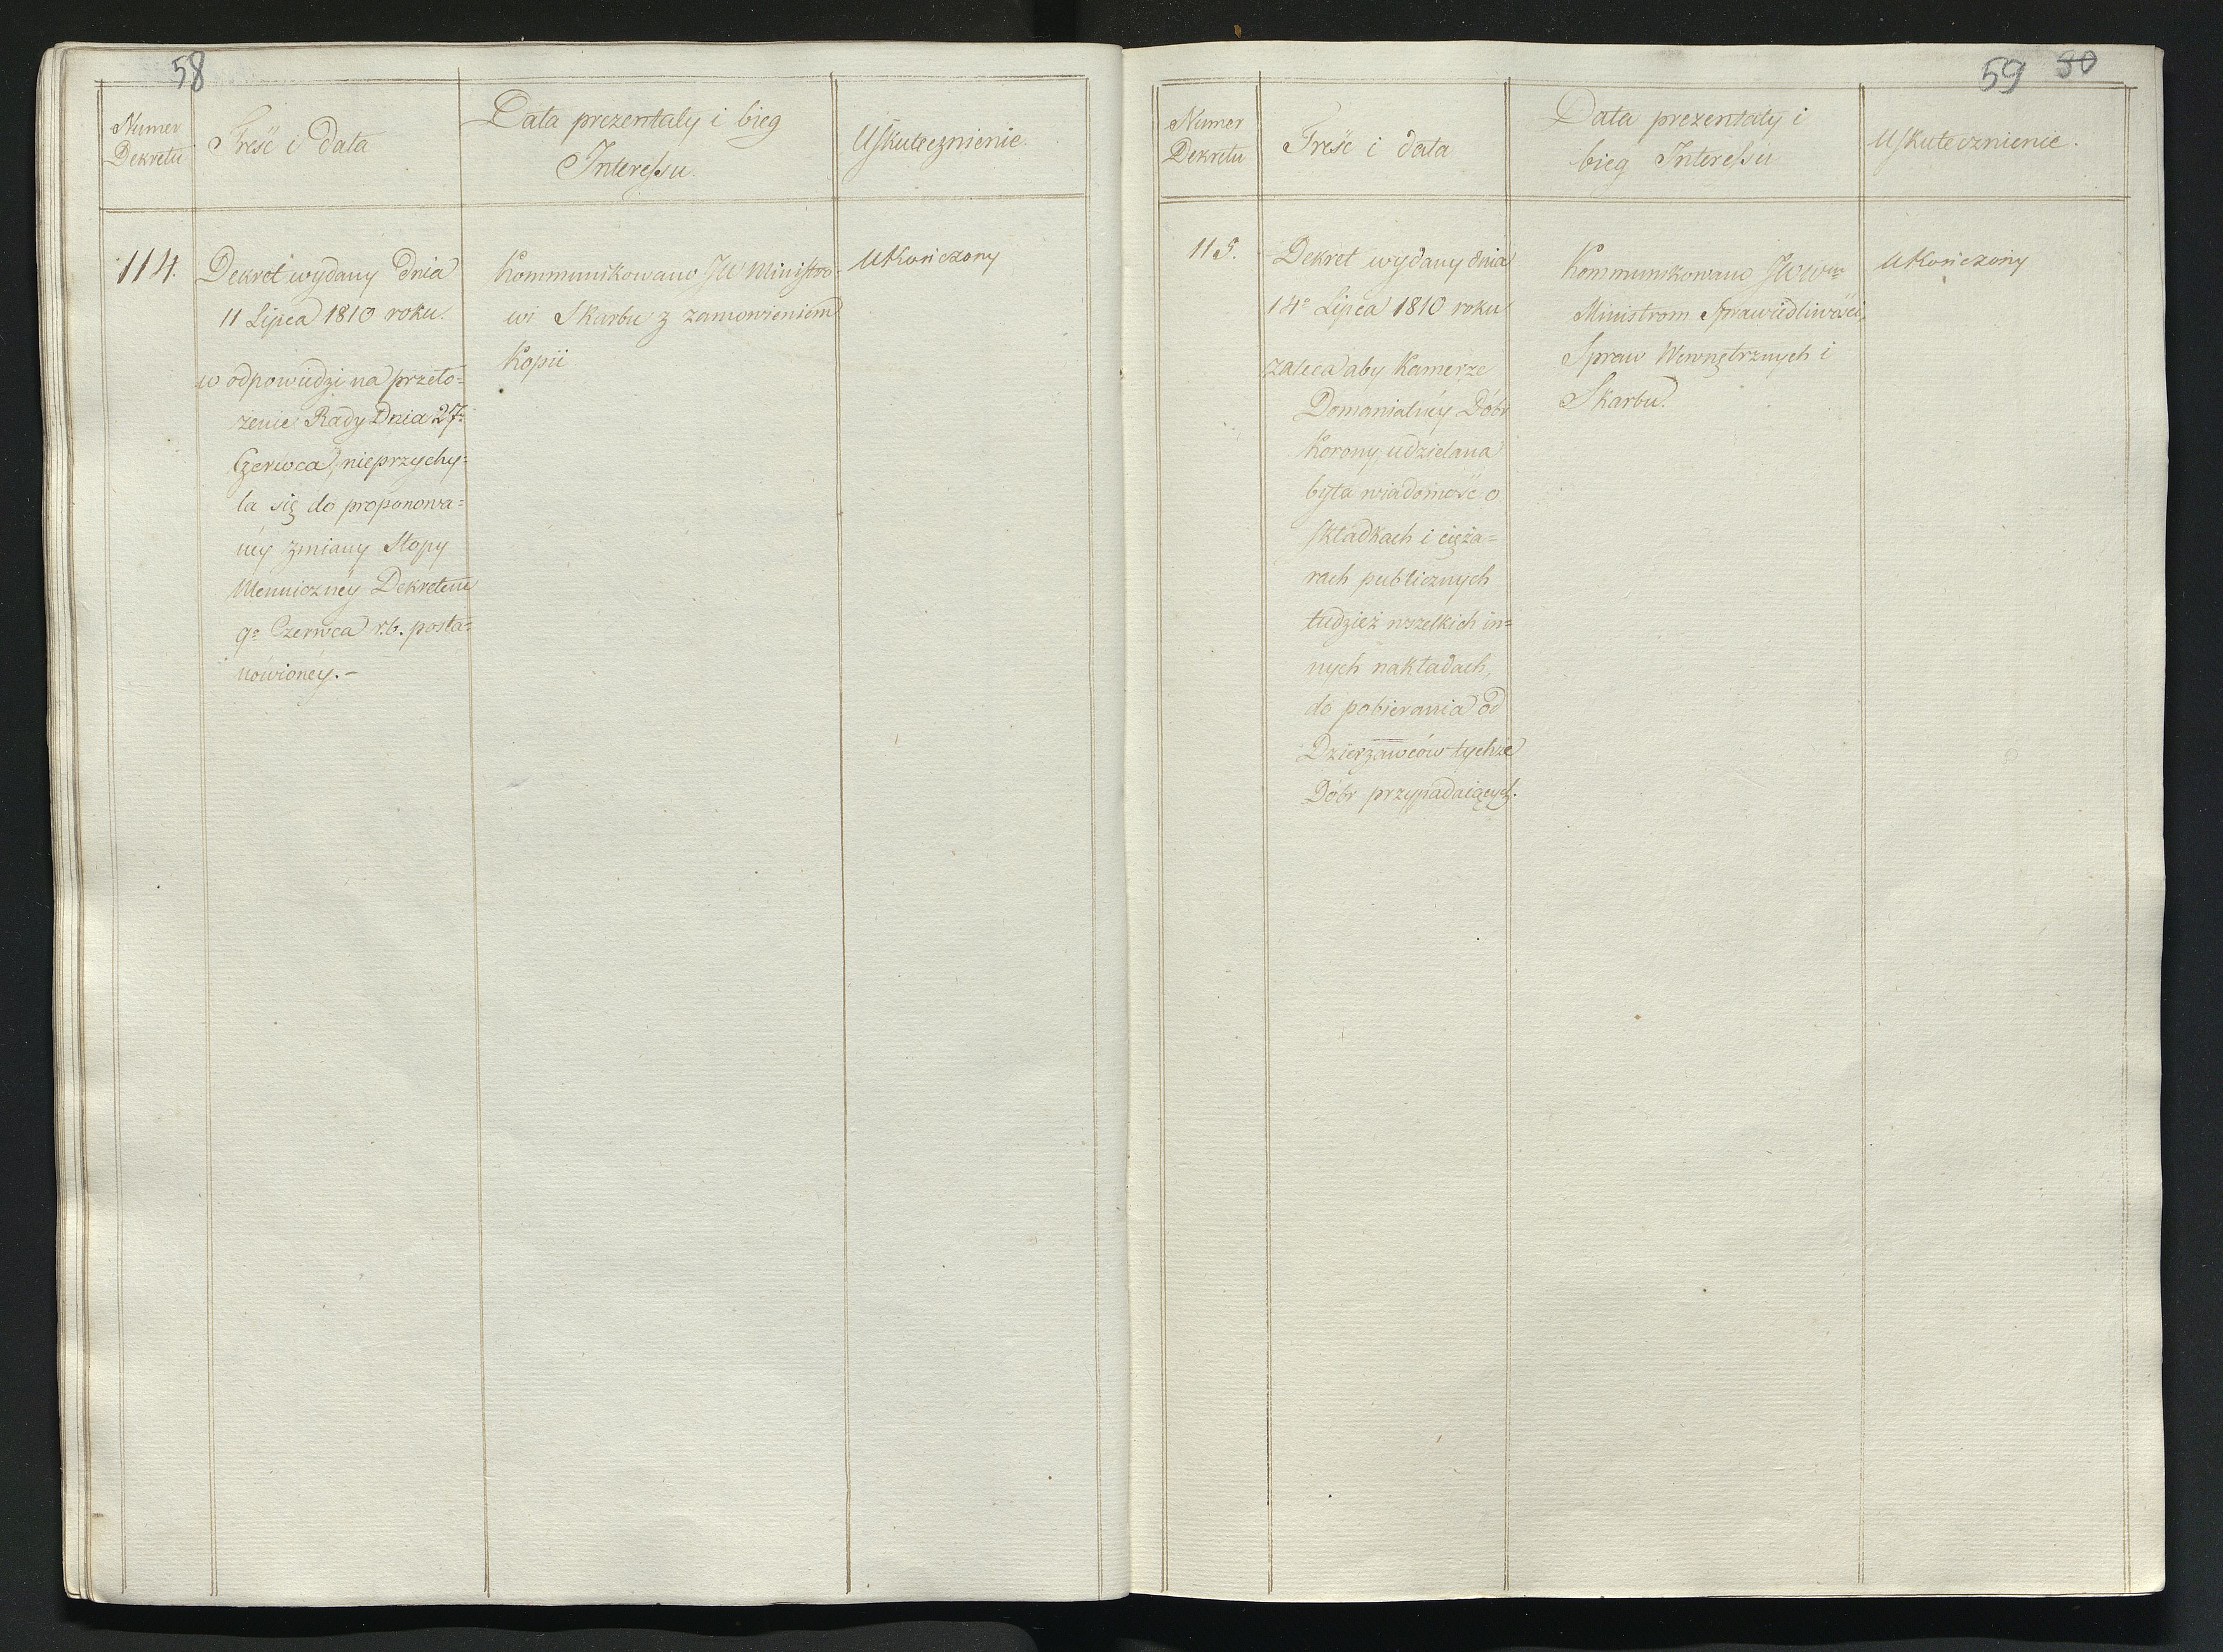 58
Numer
Dekretu
Treść i Data
Data prezentaty i bieg
Interessu.
Uskutecznienie.
114.
Dekret wydany Dnia
11 Lipca 1810 roku.
w odpowiedzi na przeło=
żenie Rady Dnia 27.
Czerwca, nieprzychy=
la się do proponowa=
néy zmiany Stopy
Menniczney Dekretem
9º Czerwca r.b. posta=
nowionéy.–
Kommunikowano JW Ministro=
wi Skarbu z zamowieniem
Kopii
Ukończony
59 30
Numer
Dekretu
Treść i data
Data prezentaty i
bieg Interessu
Uskutecznienie.
115.
Dekret wydany dnia
14º Lipca 1810 roku
zaleca aby Kamerze
Domanialnéy Dóbr
Korony udzielana
była wiadomość o
składkach i cięża=
rach publicznych
tudzież wszelkich in=
nych nakładach,
do pobierania od
Dzierzawców tychże
Dóbr przypadaiących.
Kommunikowano
Ministrom Sprawiedliwości,
Spraw Wewnętrznych i
Skarbu.
Ukończony